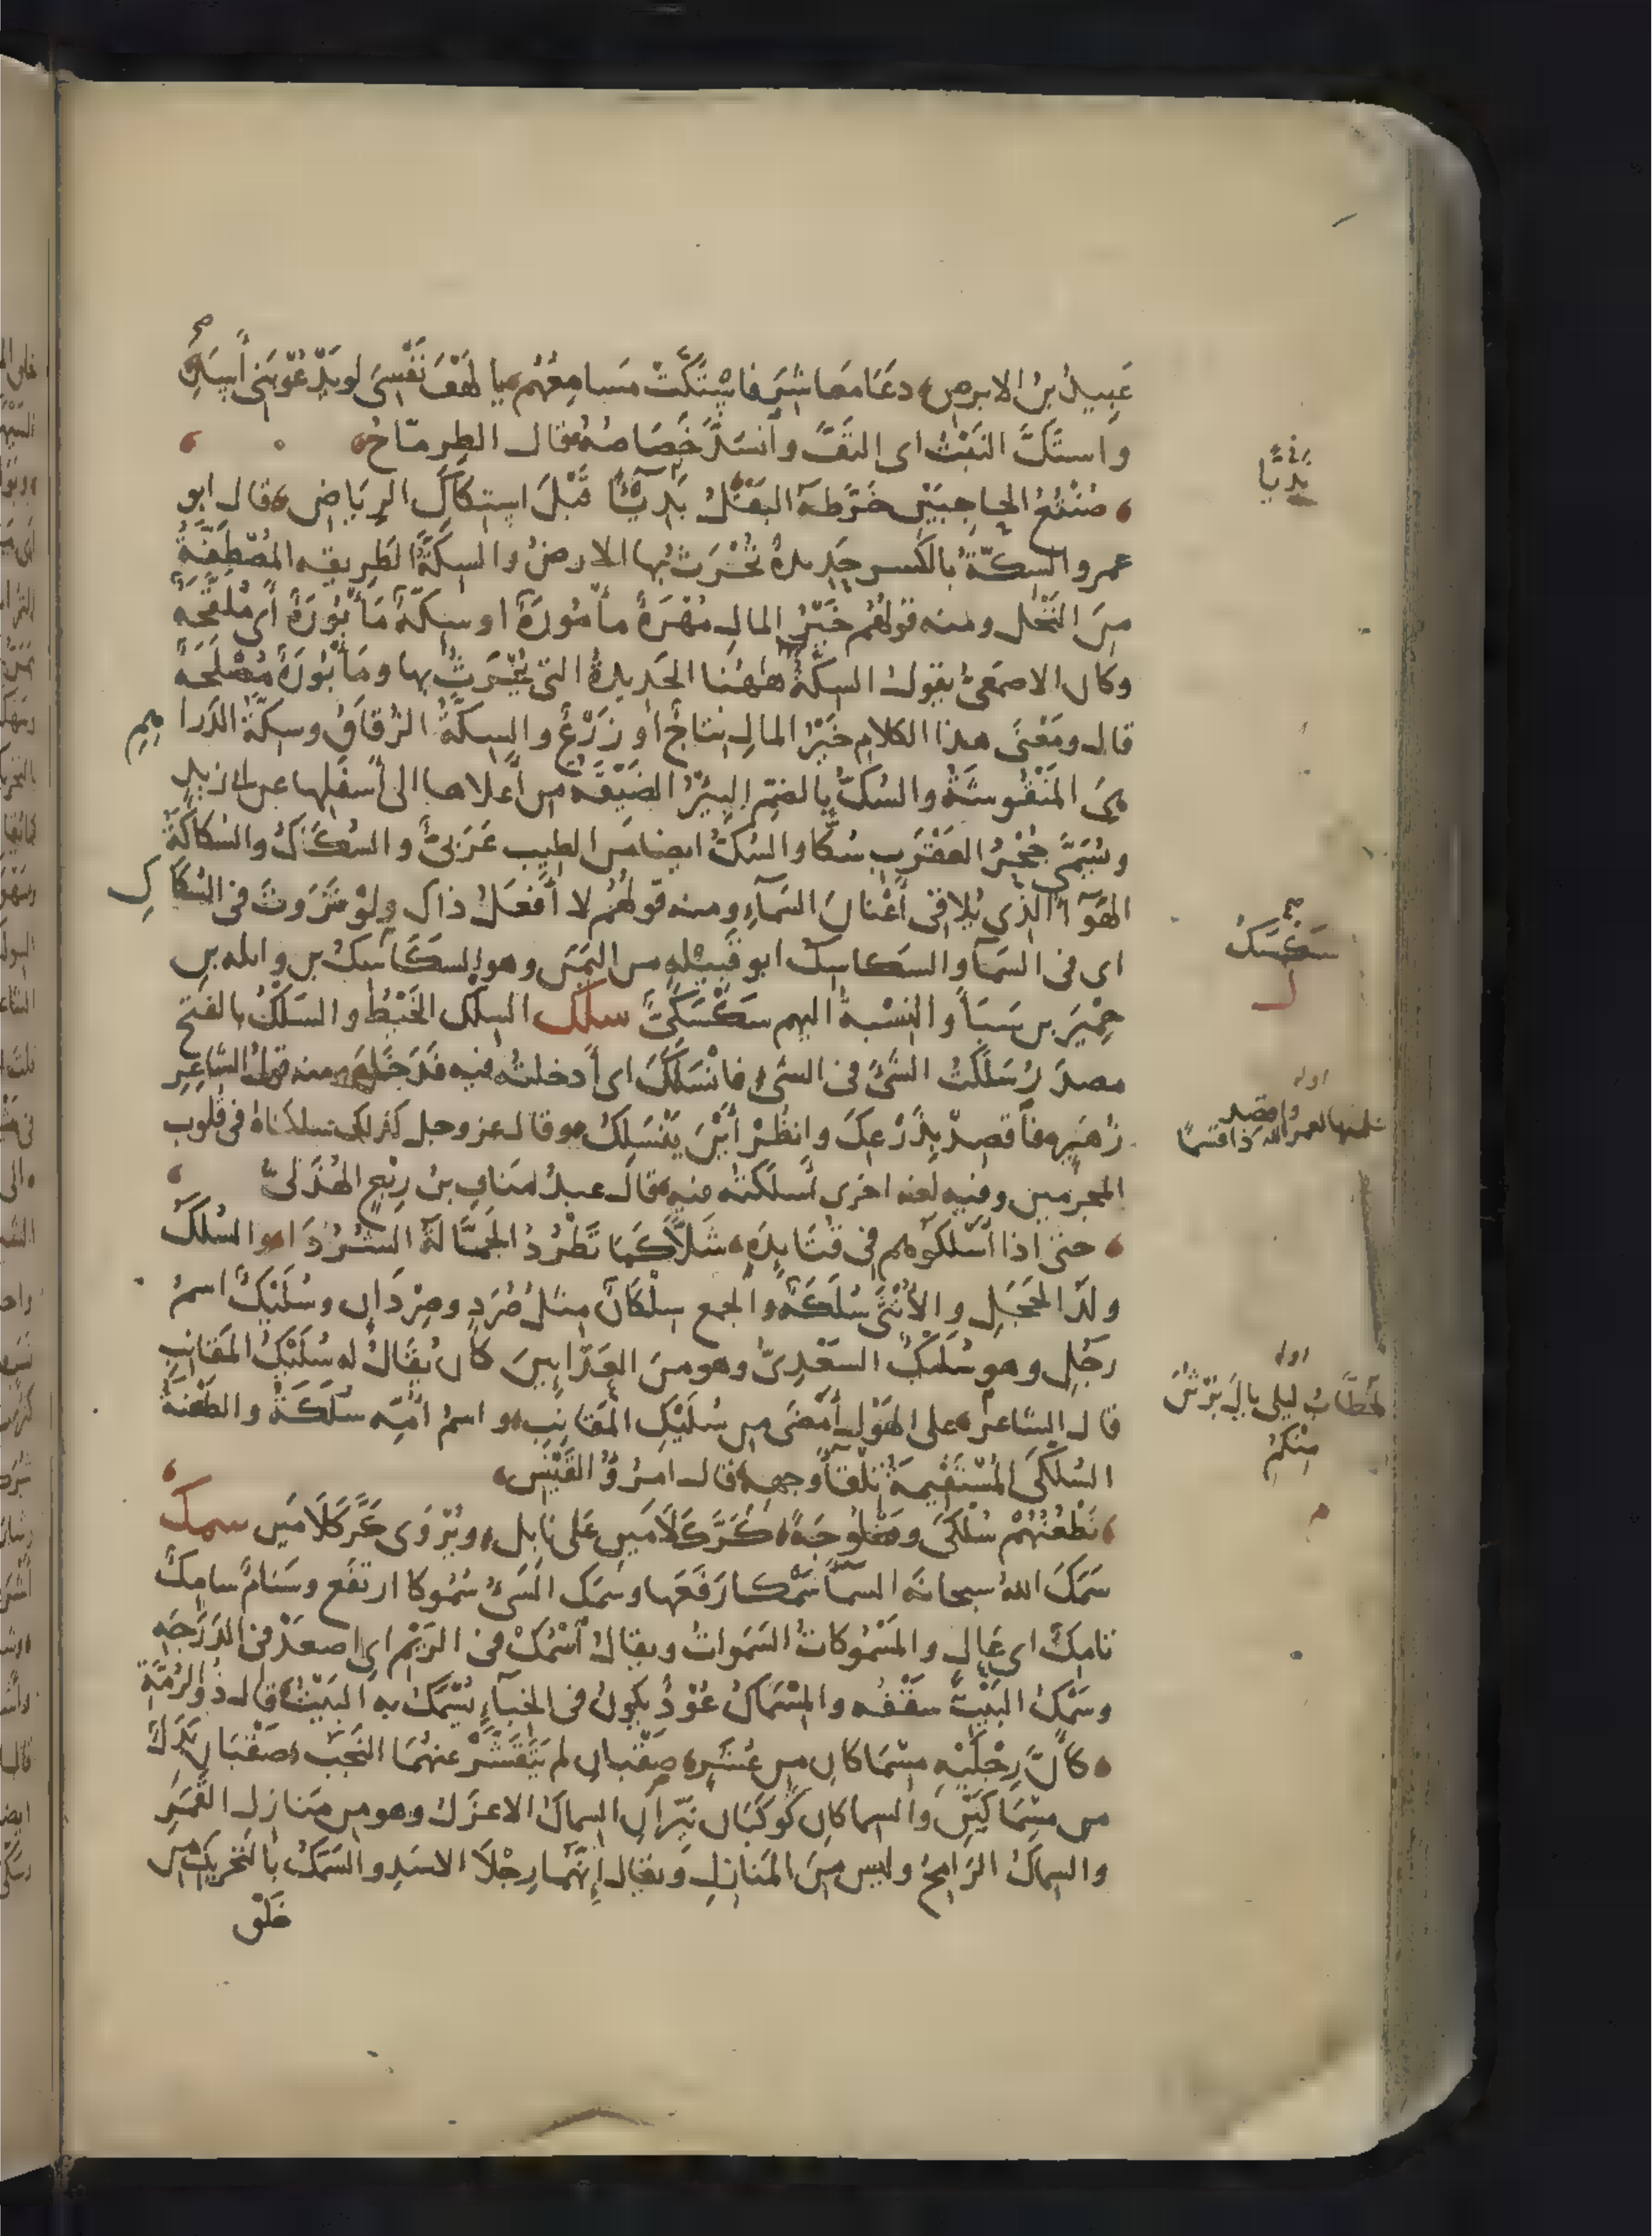 عَبِيدُ بنُ الابرصِ دعَا مَعاشِرَ فاسْتَكَّتْ مَسامِعُهُم يا لَهْفَ نَفْسِىَ لو يَدْعُو بَنِى أَسَدِ صح
واستكَّ النَبْتُ اى التفَّ وانسَدَّ خَصَاصُهُ قال الطِرِمّاحُ
صُنْتُعُ الحاجِبَيْنِ خَرَّطَهُ البَقْلُ بَدِيًّا قَبْلَ استِكَاكِ الرِيَاضِ قال ابو
عمرو السِكّةُ بالكسر حَدِيدةٌ تُحْرَثُ بها الارضُ والسِكَّةُ الطَرِيقه المُصْطَفَّةُ
مِنَ النَخْلِ ومنه قولُهُم خَيْرُ المالِ مُهْرَةٌ مأمُورَةٌ او سِكّةٌ مَأْبُورَةٌ أَىْ مُلقَّحَةٌ
وكان الاصمَعِىُّ يقول السِكَّةُ هٰهُنا الحَدِيدةُ التى يُحْرَثُ بها ومَأْبُورَةٌ مُصْلَحَةٌ
قال ومَعْنَى هذا الكلامِ خَيْرُ المالِ نِتاجٌ أو زَرْعٌ والسِكَّةُ الزُقَاقُ وسِكَّةُ الدَرا هِمِ
هِىَ المَنْقُوشَةُ والسُكُّ بالضمِ البِيْرُ الضَيِّقَه مِن أَعلاها الى أسفلِها عن ابى زيدٍ
ويُسَمَّى جُحْرُ العَقْرَبِ سُكًّا والسُكُّ ايضا مَن الطِيب عَرَبىٌّ والسُكَاكُ والسُكاكَةُ
الهَوَآءُ الّذِى يُلاقى أَعْنانَ السَمآءِ ومنه قولُهُم لا أفعلُ ذاكَ ولوْ نَزَوتَ فى السُكَا كِ
اى فى السَمآ والسَكاسِكُ ابو قَبِيْلةٍ من اليَمَنِ وهو السَكَاسِكُ بن وايله بن
حِمْيَرَ بن سَبَأ والنِسْبةُ اليهم سَكْسَكىٌّ سلك السِلكُ الخَيْطُ والسَلْكُ بالفتح
مصدَرُ سَلَكْتُ الشَىْ فى الشىءِ فانْسَلَكَ اى أدخلتُه فيه فَدَخَلَ ومنه قولُ الشَاعِرِ
زُهَيرٍ فاقصِدْ بِذَرْعِكَ وانظُرْ أَيْنَ يَنْسَلِكُ وقال عز وجل كذلك سلكناهُ فى قُلوب
المجرمين وفيه لُغه اخرى أسلكتُه فيهِ قال عبدُ مَنافِ بنُ رِبْعٍ الهُذَلىُّ
حتى اذا أَسْلَكوهم فى قُتَايِدَةٍ شَلًّا كمَا تَطْرُدُ الجَمَّالَةُ الشُرُدَا والسُلَكُ
ولَدُ الحَجَلِ والأنْثَى سُلَكَةٌ والجمع سِلْكَانٌ مِثلُ صُرَدٍ وصِرْدَانٍ وسُلَيْكٌ اسمُ
رجُلٍ وهو سُلَيكٌ السَعْدِىُّ وهو مِنَ العَدّايِينَ كان يُقَالُ له سُلَيْكُ المَقَانِبِ
قال الشاعر على الهَوْلِ أَمْضَى مِن سُلَيْكِ المَقَانِبِ واسمُ أمِّه سُلَكَةُ والطَعْنَةُ
السُلْكَى المُسْتَقِيمَةُ تِلْقَآ وجهِهِ قال امرُؤُ القَيْسِ
نَطْعُنُهُمْ سُلْكَى ومَخْلُوجَةً كَرَّكَ لَامَيْنِ عَلى نَابِلِ ويُرْوَى كَرَّ كَلَامَيْنِ سمك
سَمَكَ اللهُ سبحانه السمَآ سَمْكا رَفَعَها وسَمَك الشَىْ سُمُوكا ارتفَع وسَنَامٌ سامِكٌ
تامِكٌ اى عَالٍ والمَسْمُوكاتُ السَمَواتُ ويقالُ اسْمُكْ فى الرَيْمِ اى اصعَدْ فى الدَرَجَةِ
وسَمْكُ البَيْتِ سقْفُه والمِسْمَاكُ عُوْدٌ يكونُ فى الخِبآءِ يُسْمَكُ به البَيْتُ قال ذو الرُمَّةِ
كأَنَّ رِجْلَيْهِ مِسْمَاكانِ مِن عُشَرٍ صَقْبانِ لم يَتَقَشَّرْ عنهُمَا النَجَبُ صَقْبَانِ بَدَلٌ
من مِسْمَاكَيْنِ والسِماكانِ كَوكَبَان نَيِّرَانِ السِماكُ الاعزَلُ وهو مِن مَنازِلِ القَمَرِ
والسِماكُ الرَامِحُ وليس مِنَ المَنازِلِ ويقال إِنَّهُما رِجْلَا الاسَدِ والسَمَكُ بالتَحْرِيكِ مِن
خَلْقِ
بَدِيًّا
صح
سَكْسَكُ
اوله
تعلمنها لعمر الله ذا قسما
فاقصد
اوله
لَخُطَّابُ ليلى يالَ بُرْثُنَ
مِنْكُمُ